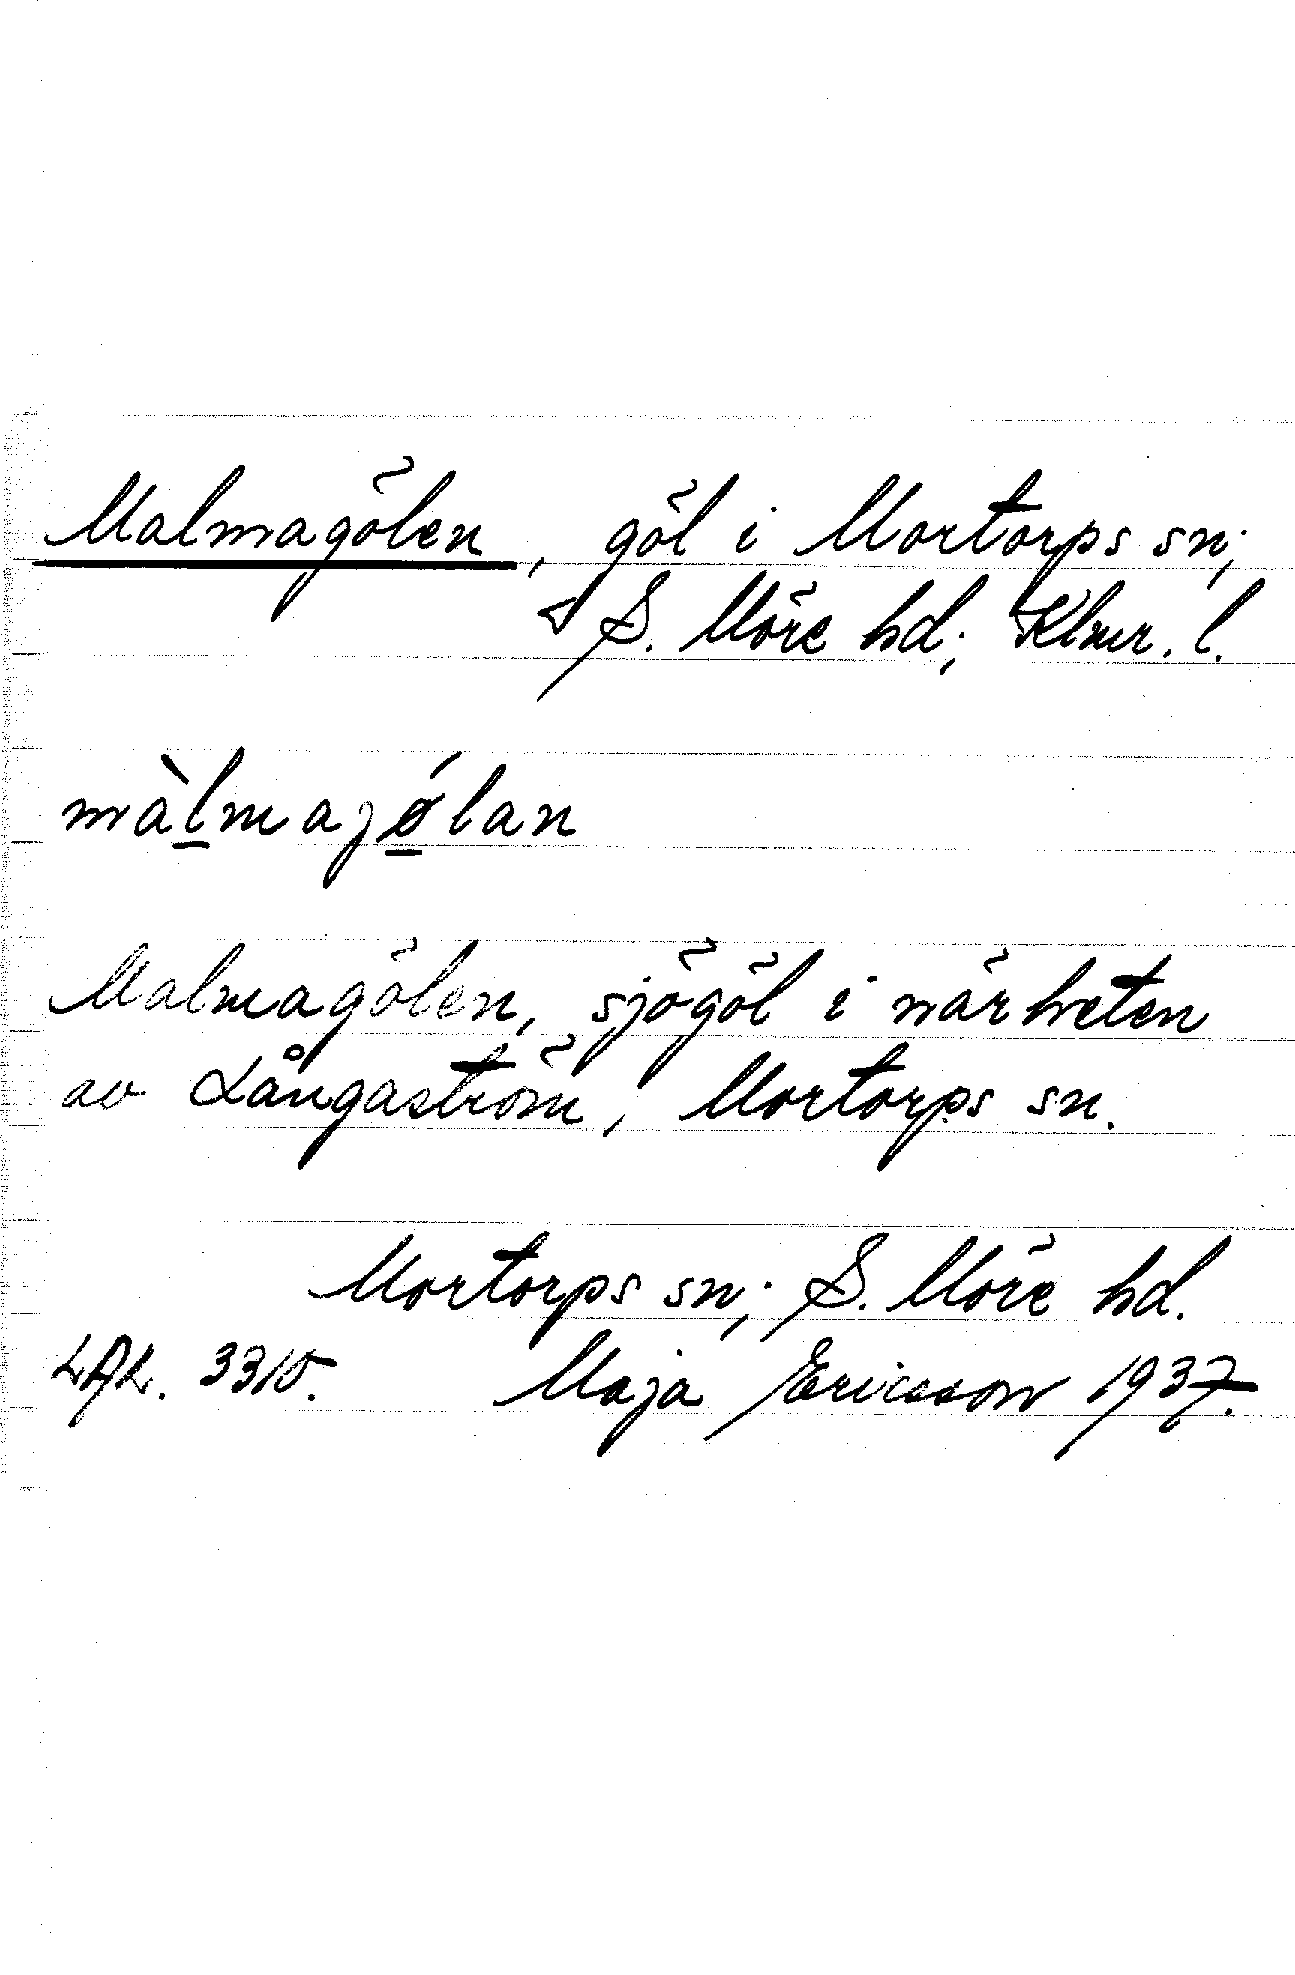 Malmagölen, göl i Mortorps sn;
S. Möre hd; Klmr. l.
mà̱lmajǿ̱lan
Malmagölen, sjögöl i närheten
av Långaström, Mortorps sn.
Mortorps sn; S. Möre hd.
3310. Maja Ericsson 1937.